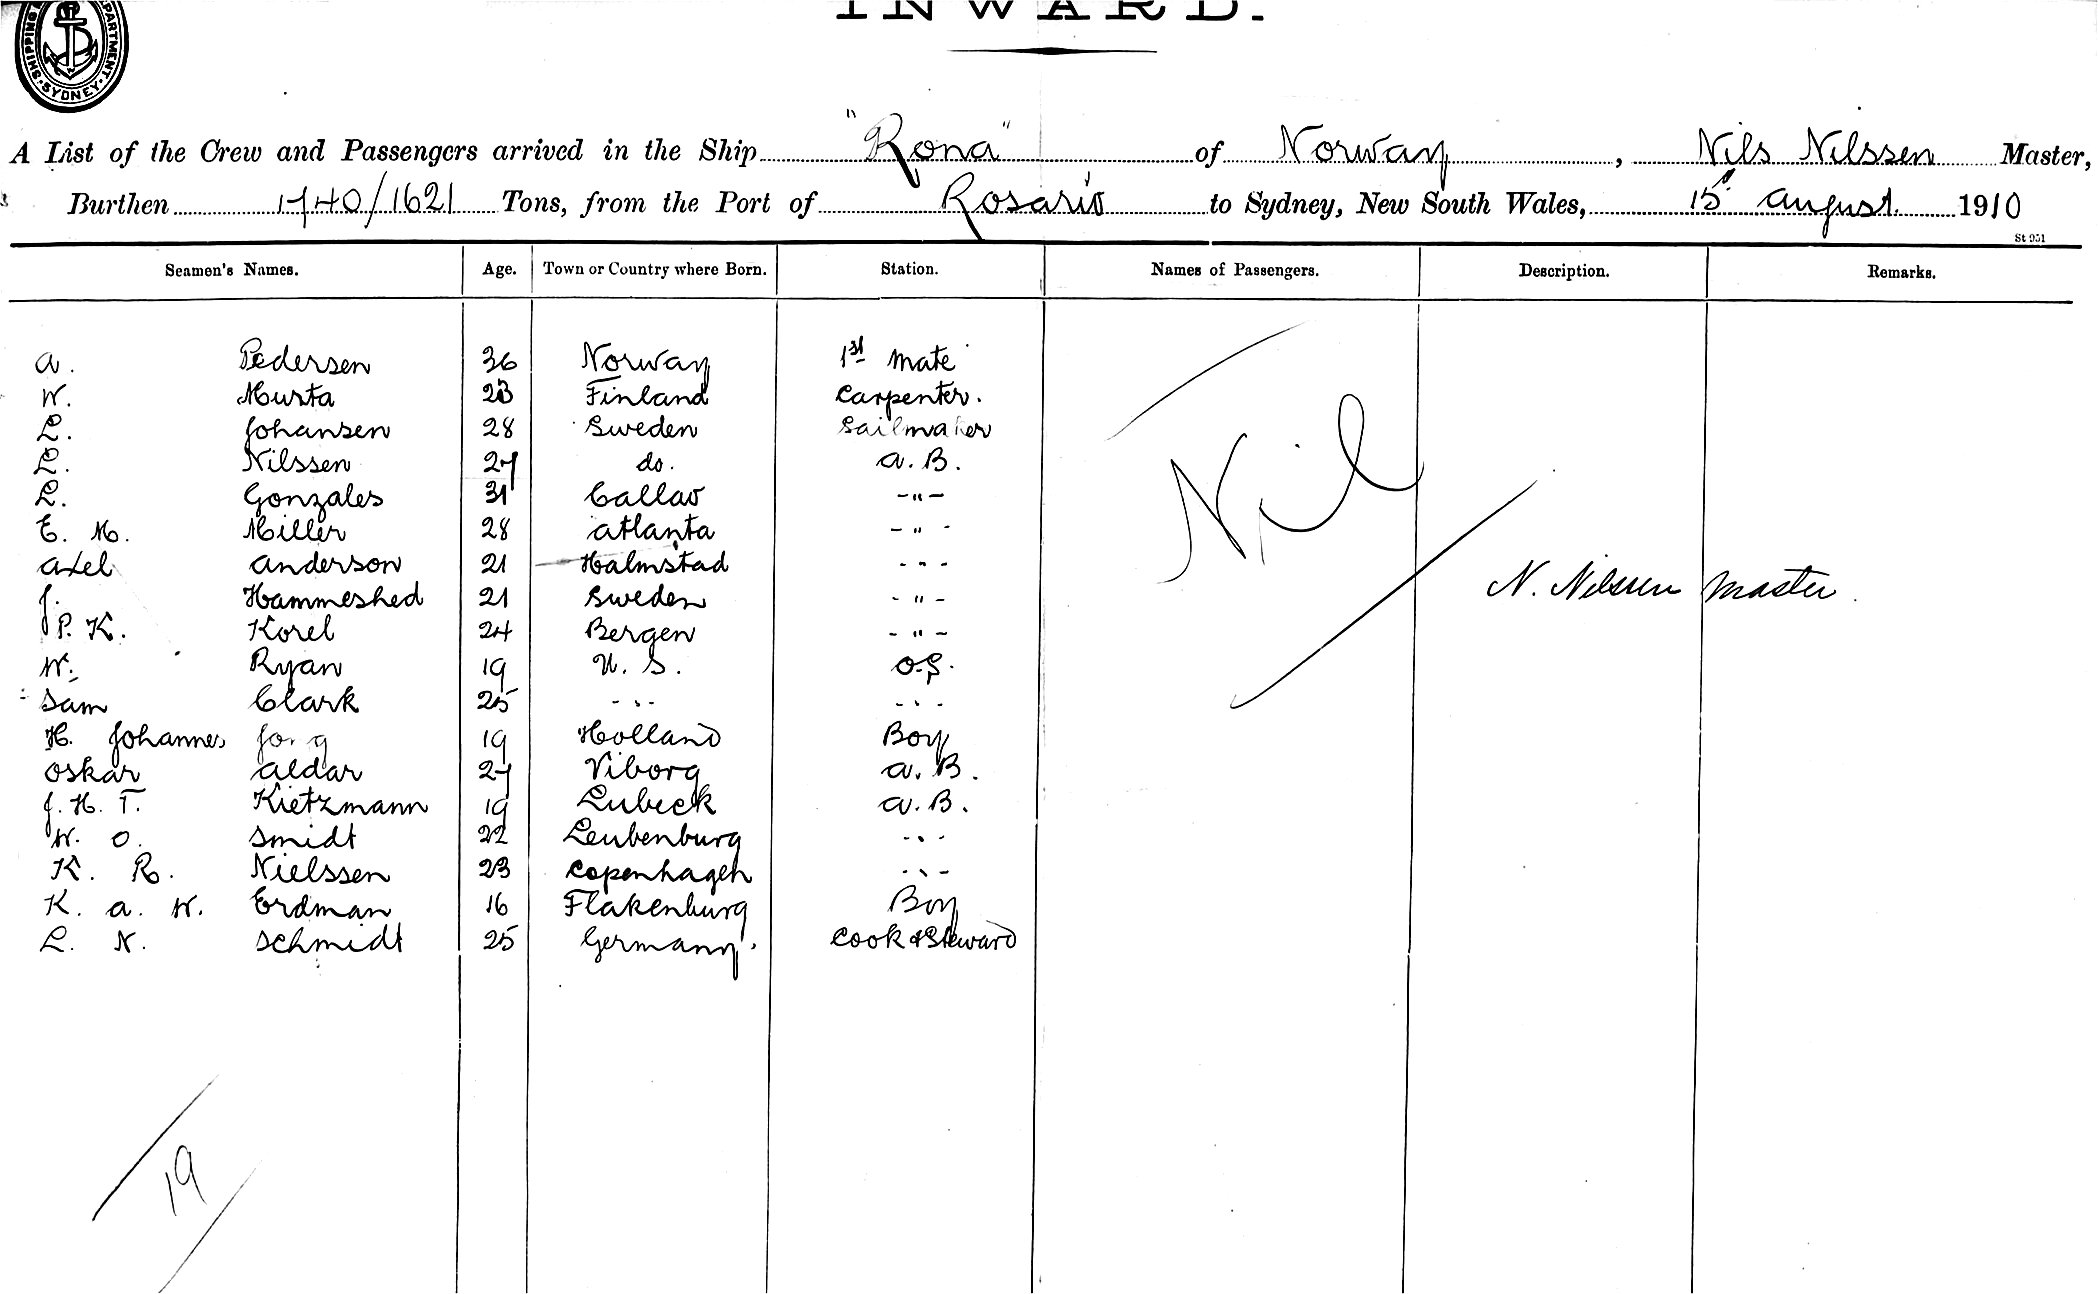 INWARD.
SHIPPING DEPARTMENT SYDNEY
A List of the Crew and Passengers arrived in the Ship "Rona" of Norway, Nils Nilssen Master,
Burthen 1740/1621 Tons, from the Port of Rosario to Sydney, New South Wales, 15 August 1910
St 951
Seamen's Names. Age. Town or Country where Born. Station. Names of Passengers. Description. Remarks.
A. Pedersen 36 Norway 1st Mate
W. Murta 23 Finland Carpenter.
L. Johansen 28 Sweden Sailmaker
L. Nilssen 27 do. A.B.
L. Gonzales 31 Callao -"-
E. M. Miller 28 Atlanta -"-
Axel Anderson 21 Halmstad -"-
J. Hammeshed 21 Sweden -"-
P. K. Korel 24 Bergen -"-
W. Ryan 19 U.S. O.S.
Sam Clark 25 -"- -"-
H. Johannes 19 Holland Boy
Oskar Aldar 27 Viborg A.B.
J. H. T. Kietzmann 19 Lubeck A.B.
W. O. Smidt 22 Leubenburg -"-
K. R. Nielssen 23 Copenhagen -"-
K. A. W. Erdman 16 Flakenburg Boy
L. N. Schmidt 25 Germany. Cook & Steward
Nil
N. Nilssen Master.
19